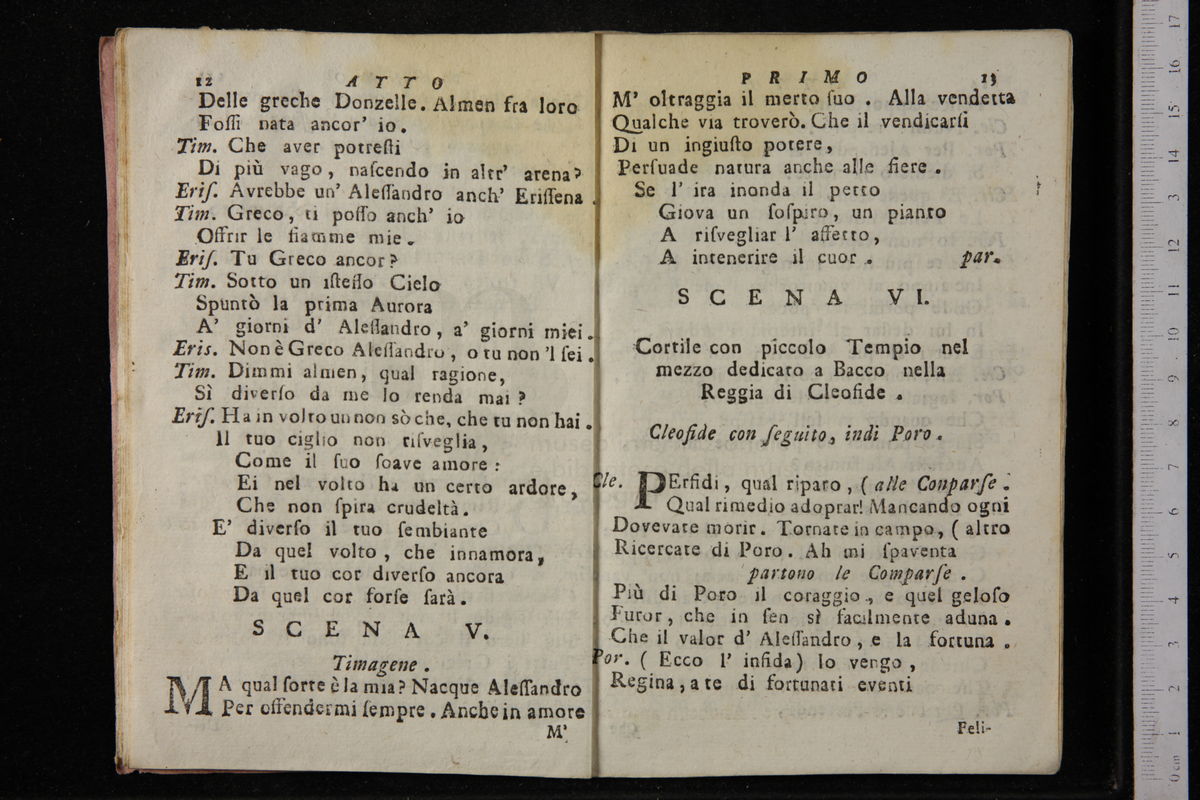 12 ATTO
Delle greche Donzelle. Almen fra loro
Foſſi nata ancor' io.
Tim. Che aver potreſti
Di più vago, naſcendo in altr' arena?
Eriſ. Avrebbe un' Aleſſandro anch' Eriſſena.
Tim. Greco, ti poſſo anch' io
Offrir le fiamme mie.
Eriſ. Tu Greco ancor?
Tim. Sotto un iſteſſo Cielo
Spuntò la prima Aurora
A' giorni d' Aleſſandro, a' giorni miei.
Eris. Non è Greco Aleſſandro, o tu non 'l ſei.
Tim. Dimmi almen, qual ragione,
Sì diverſo da me lo renda mai?
Eriſ. Ha in volto un non sò che, che tu non hai.
Il tuo ciglio non riſveglia,
Come il ſuo ſoave amore:
Ei nel volto ha un certo ardore,
Che non ſpira crudeltà.
E' diverſo il tuo ſembiante
Da quel volto, che innamora,
E il tuo cor diverſo ancora
Da quel cor forſe ſarà.
SCENA V.
Timagene.
MA qual ſorte è la mia? Nacque Aleſſandro
Per offendermi ſempre. Anche in amore
M'
PRIMO 13
M' oltraggia il merto ſuo. Alla vendetta
Qualche via troverò. Che il vendicarſi
Di un ingiuſto potere,
Perſuade natura anche alle fiere.
Se l' ira inonda il petto
Giova un ſoſpiro, un pianto
A riſvegliar l' affetto,
A intenerire il cuor. par.
SCENA VI.
Cortile con piccolo Tempio nel
mezzo dedicato a Bacco nella
Reggia di Cleofide.
Cleofide con ſeguito, indi Poro.
Cle. PErfidi, qual riparo, (alle Conparſe.
Qual rimedio adoprar! Mancando ogni
Dovevate morir. Tornate in campo, (altro
Ricercate di Poro. Ah mi ſpaventa
partono le Comparſe.
Più di Poro il coraggio, e quel geloſo
Furor, che in ſen sì facilmente aduna.
Che il valor d' Aleſſandro, e la fortuna.
Por. (Ecco l' infida) Io vengo,
Regina, a te di fortunati eventi
Feli-